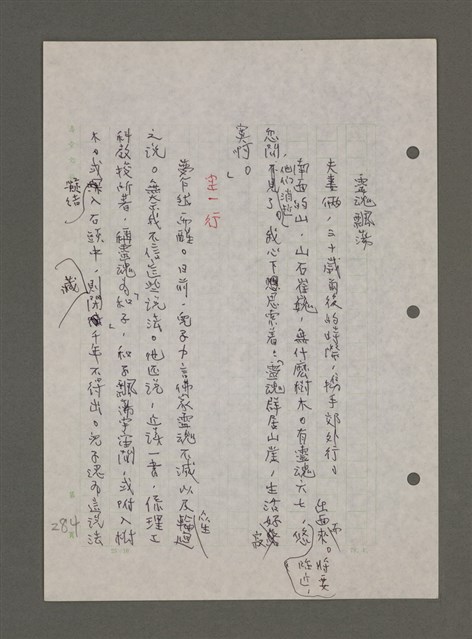 靈魂飄蕩
夫妻倆，三十歲前後的時際，携手郊外行。
南面的山，山石崔巍，無什麼樹木。有靈魂六七，悠
而出西來。將要臨近，
忽間，他們消逝不見了。我心下思索着：「靈魂群居山崖，生活好寂
寞啊。」
空一行
夢下結而醒。日前，兒子力言佛家靈魂不滅以及輪迴
之說。無奈我不信這些說法。他还說，近讀一書，係理工
科教授所著，稱靈魂為「和子」，和子飄蕩宇宙間，或附入樹
木。或藏入石頭中，千年不得出。兒子認為這說法
轉生
藏
284